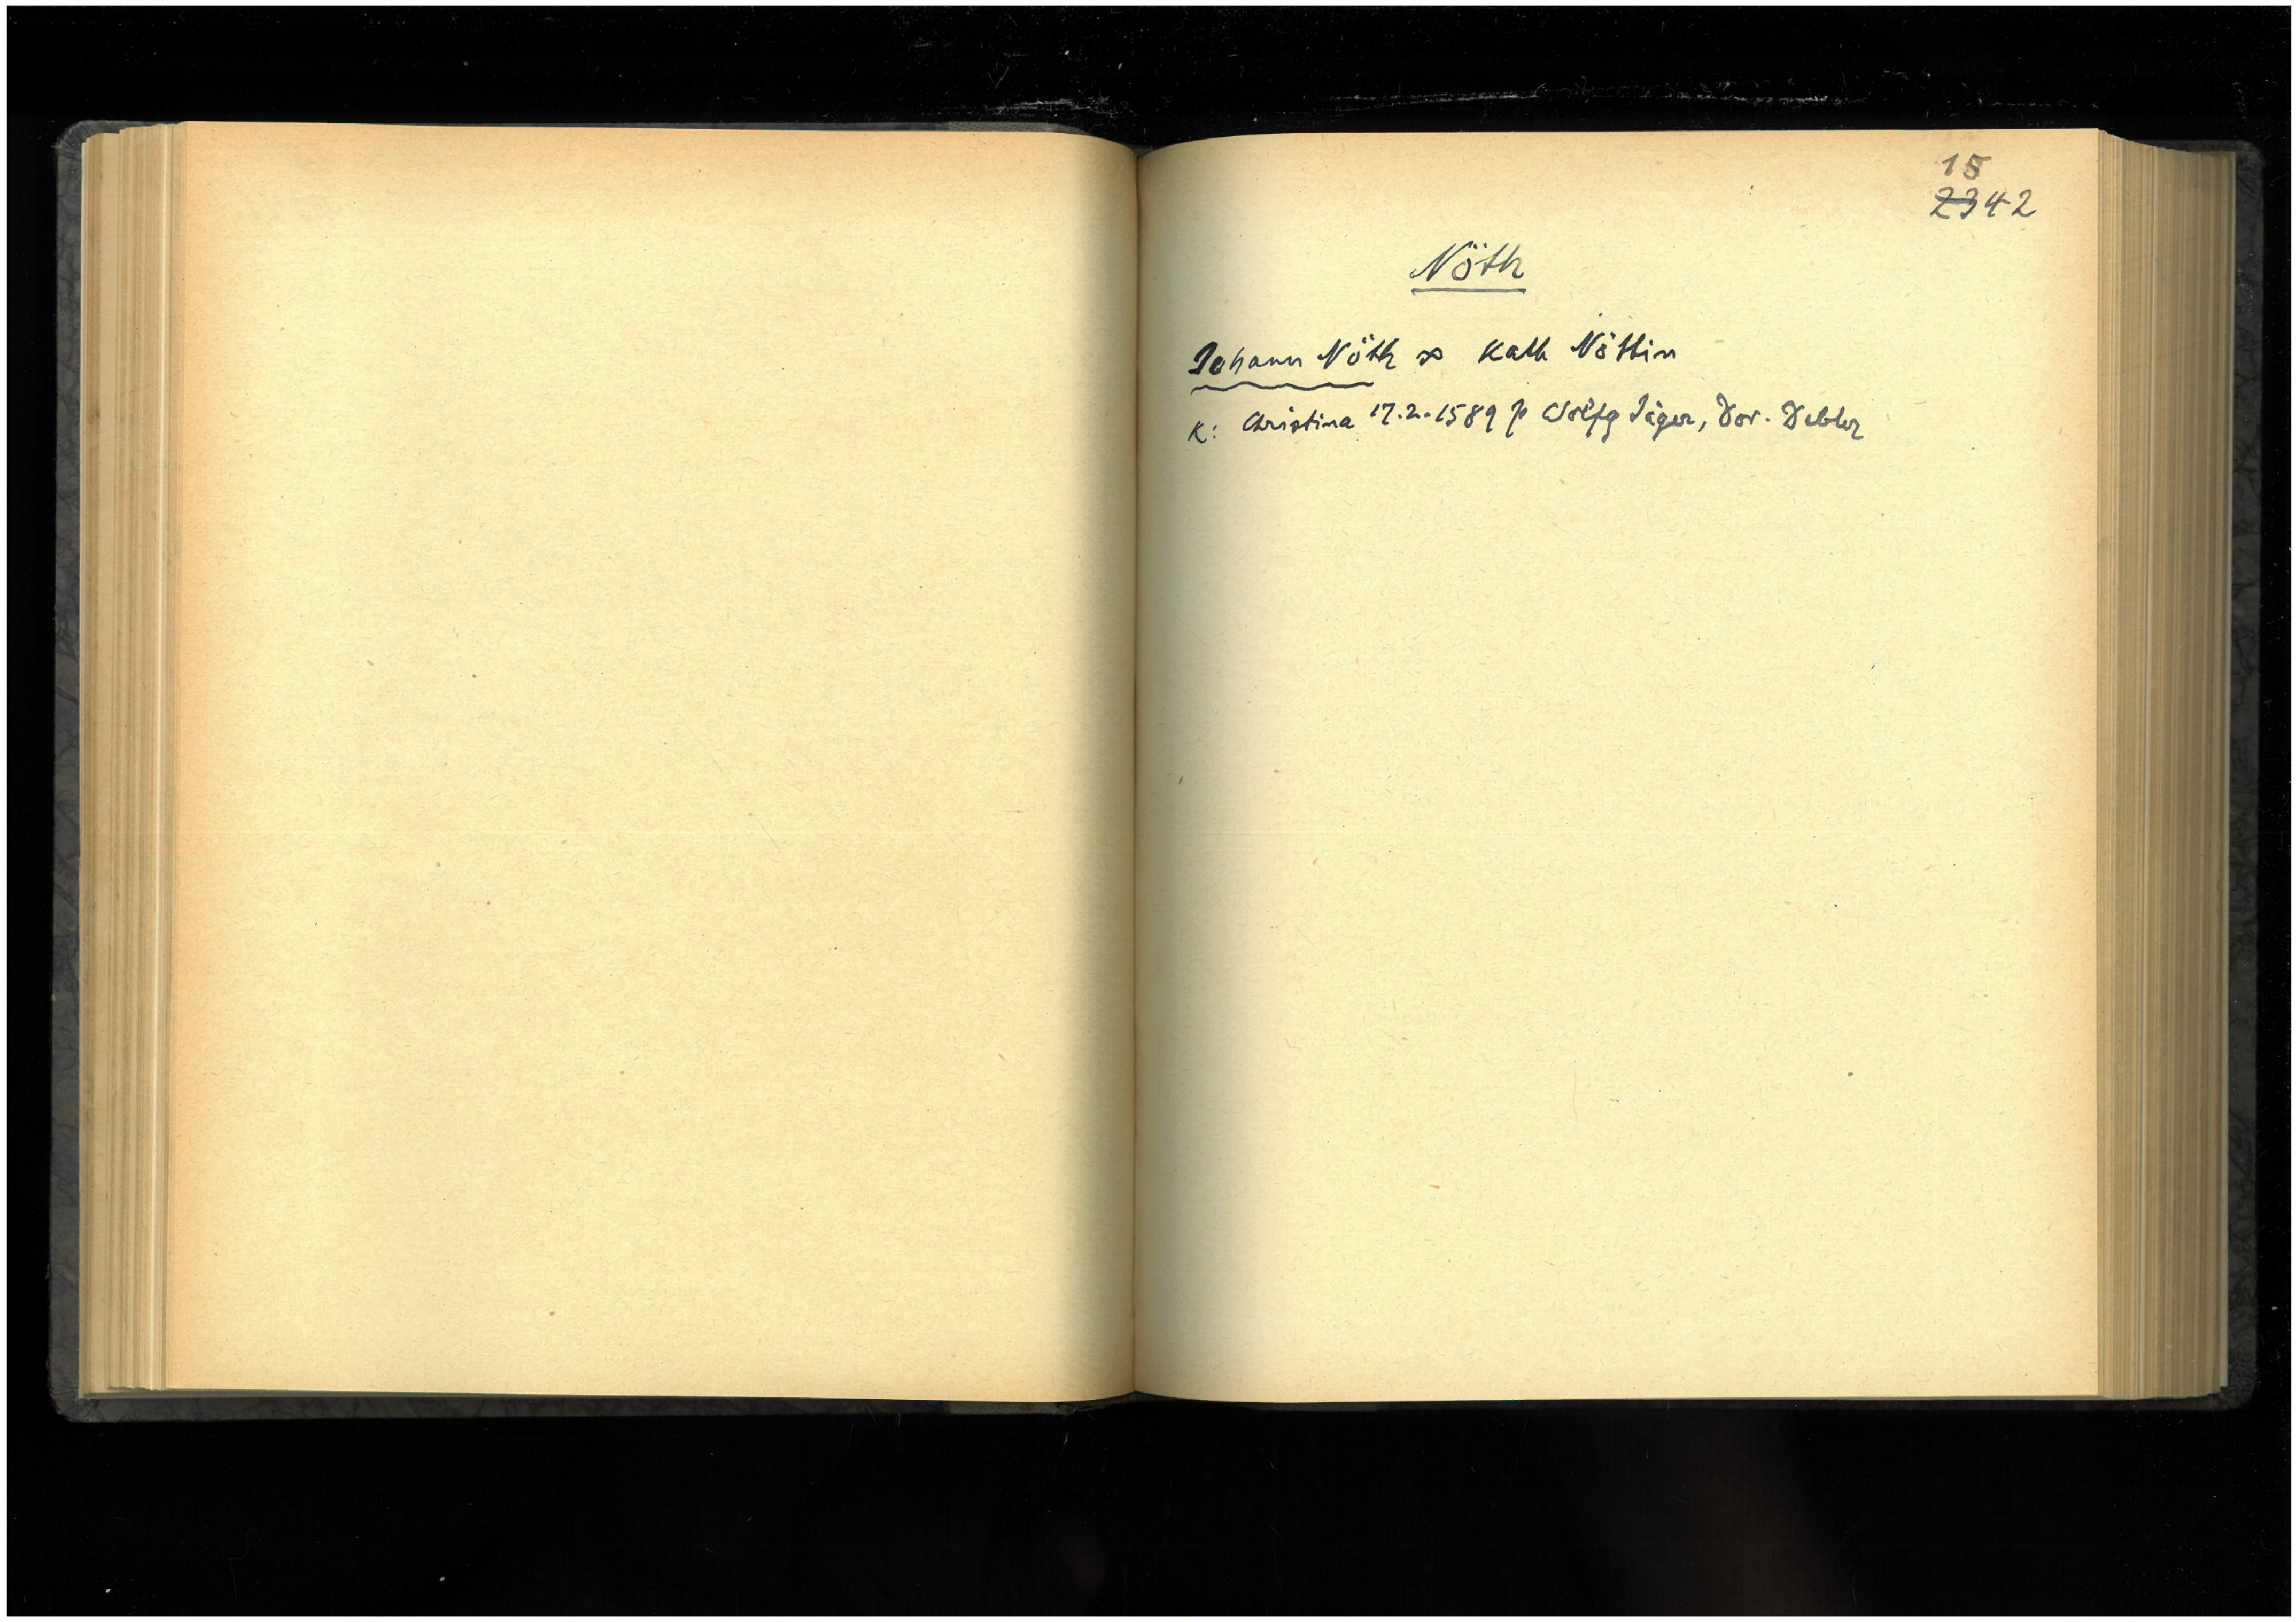 15
2342
Nöth
Johann Nöth ∞ Kath Nöttin
K: Christina 17.2.1589 p Wolfg Jäger, Dor. Debler